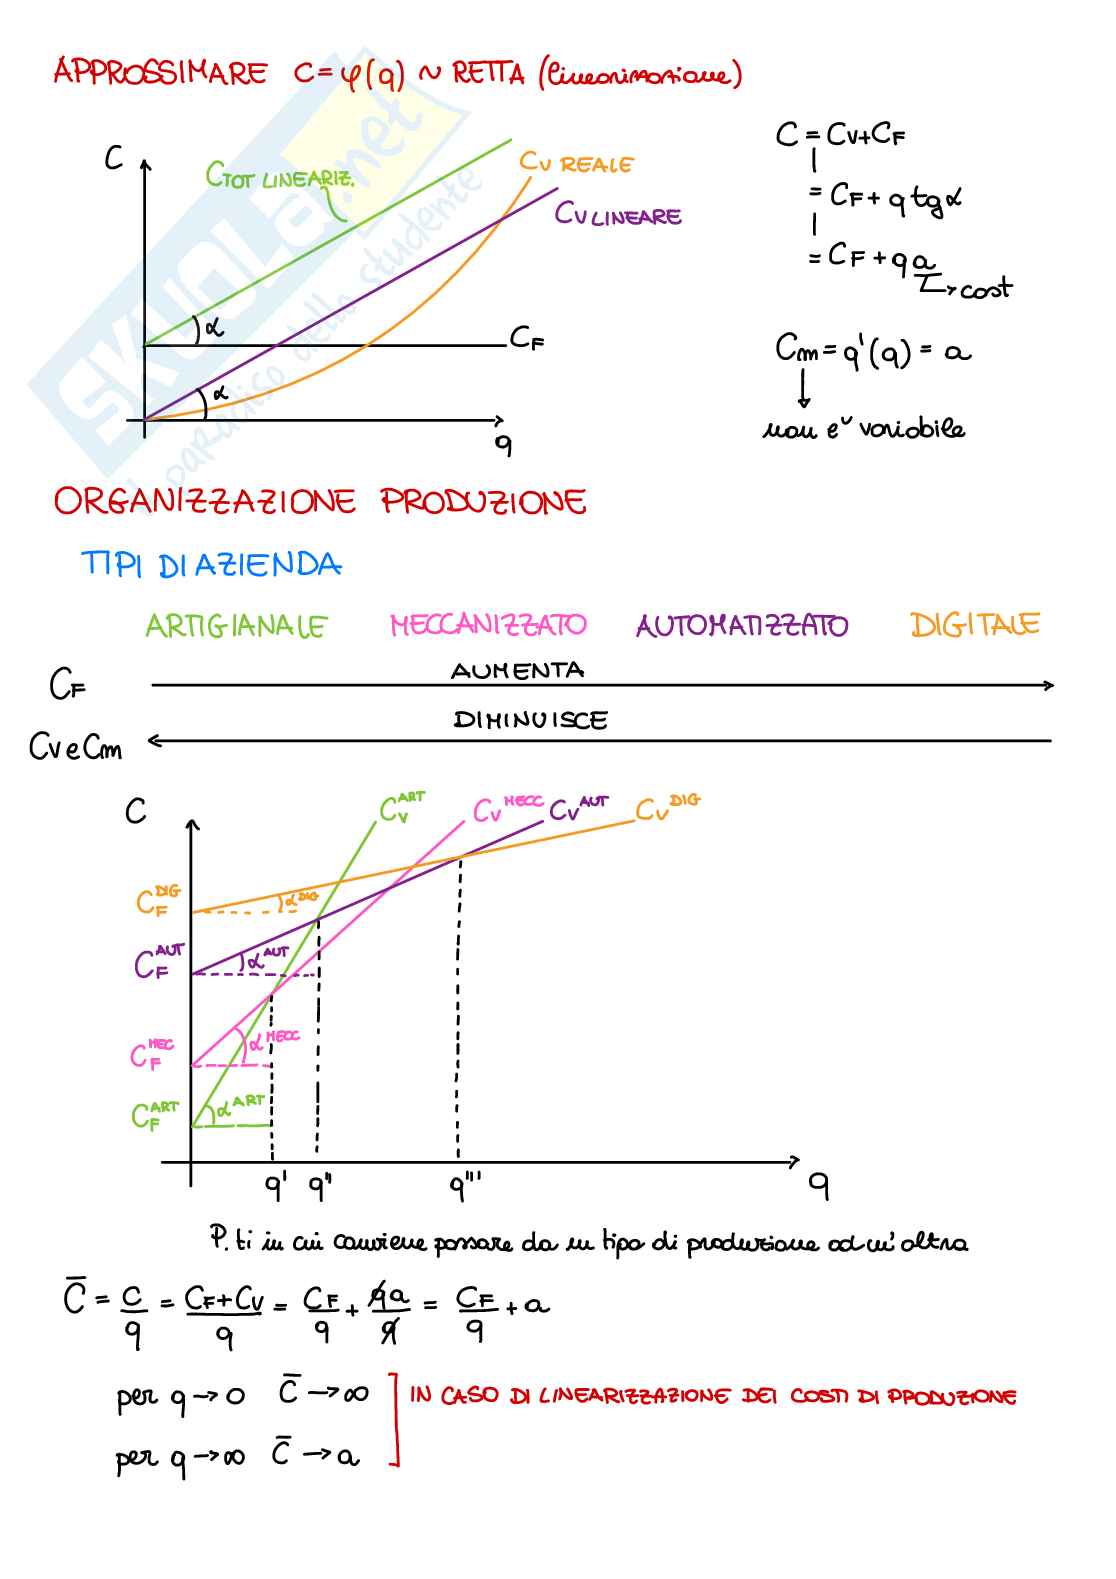 APPROSSIMARE C = φ(q) ~ RETTA (linearizzazione)
C
CTOT LINEARIZ.
CV REALE
CV LINEARE
α
CF
α
q
C = CV+CF
= CF + q tg α
= CF + q a
→ cost
Cm = q'(q) = a
non e' variabile
SKUOLA.net
il paradiso dello studente
ORGANIZZAZIONE PRODUZIONE
TIPI DI AZIENDA
ARTIGIANALE MECCANIZZATO AUTOMATIZZATO DIGITALE
CF AUMENTA
CV e Cm DIMINUISCE
C
CV^ART CV^MECC CV^AUT CV^DIG
CF^DIG α^DIG
CF^AUT α^AUT
CF^MEC α^MECC
CF^ART α^ART
q' q'' q''' q
P.ti in cui conviene passare da un tipo di produzione ad un'altra
C̄ = C/q = (CF+CV)/q = CF/q + qa/q = CF/q + a
per q → 0 C̄ → ∞
IN CASO DI LINEARIZZAZIONE DEI COSTI DI PRODUZIONE
per q → ∞ C̄ → a